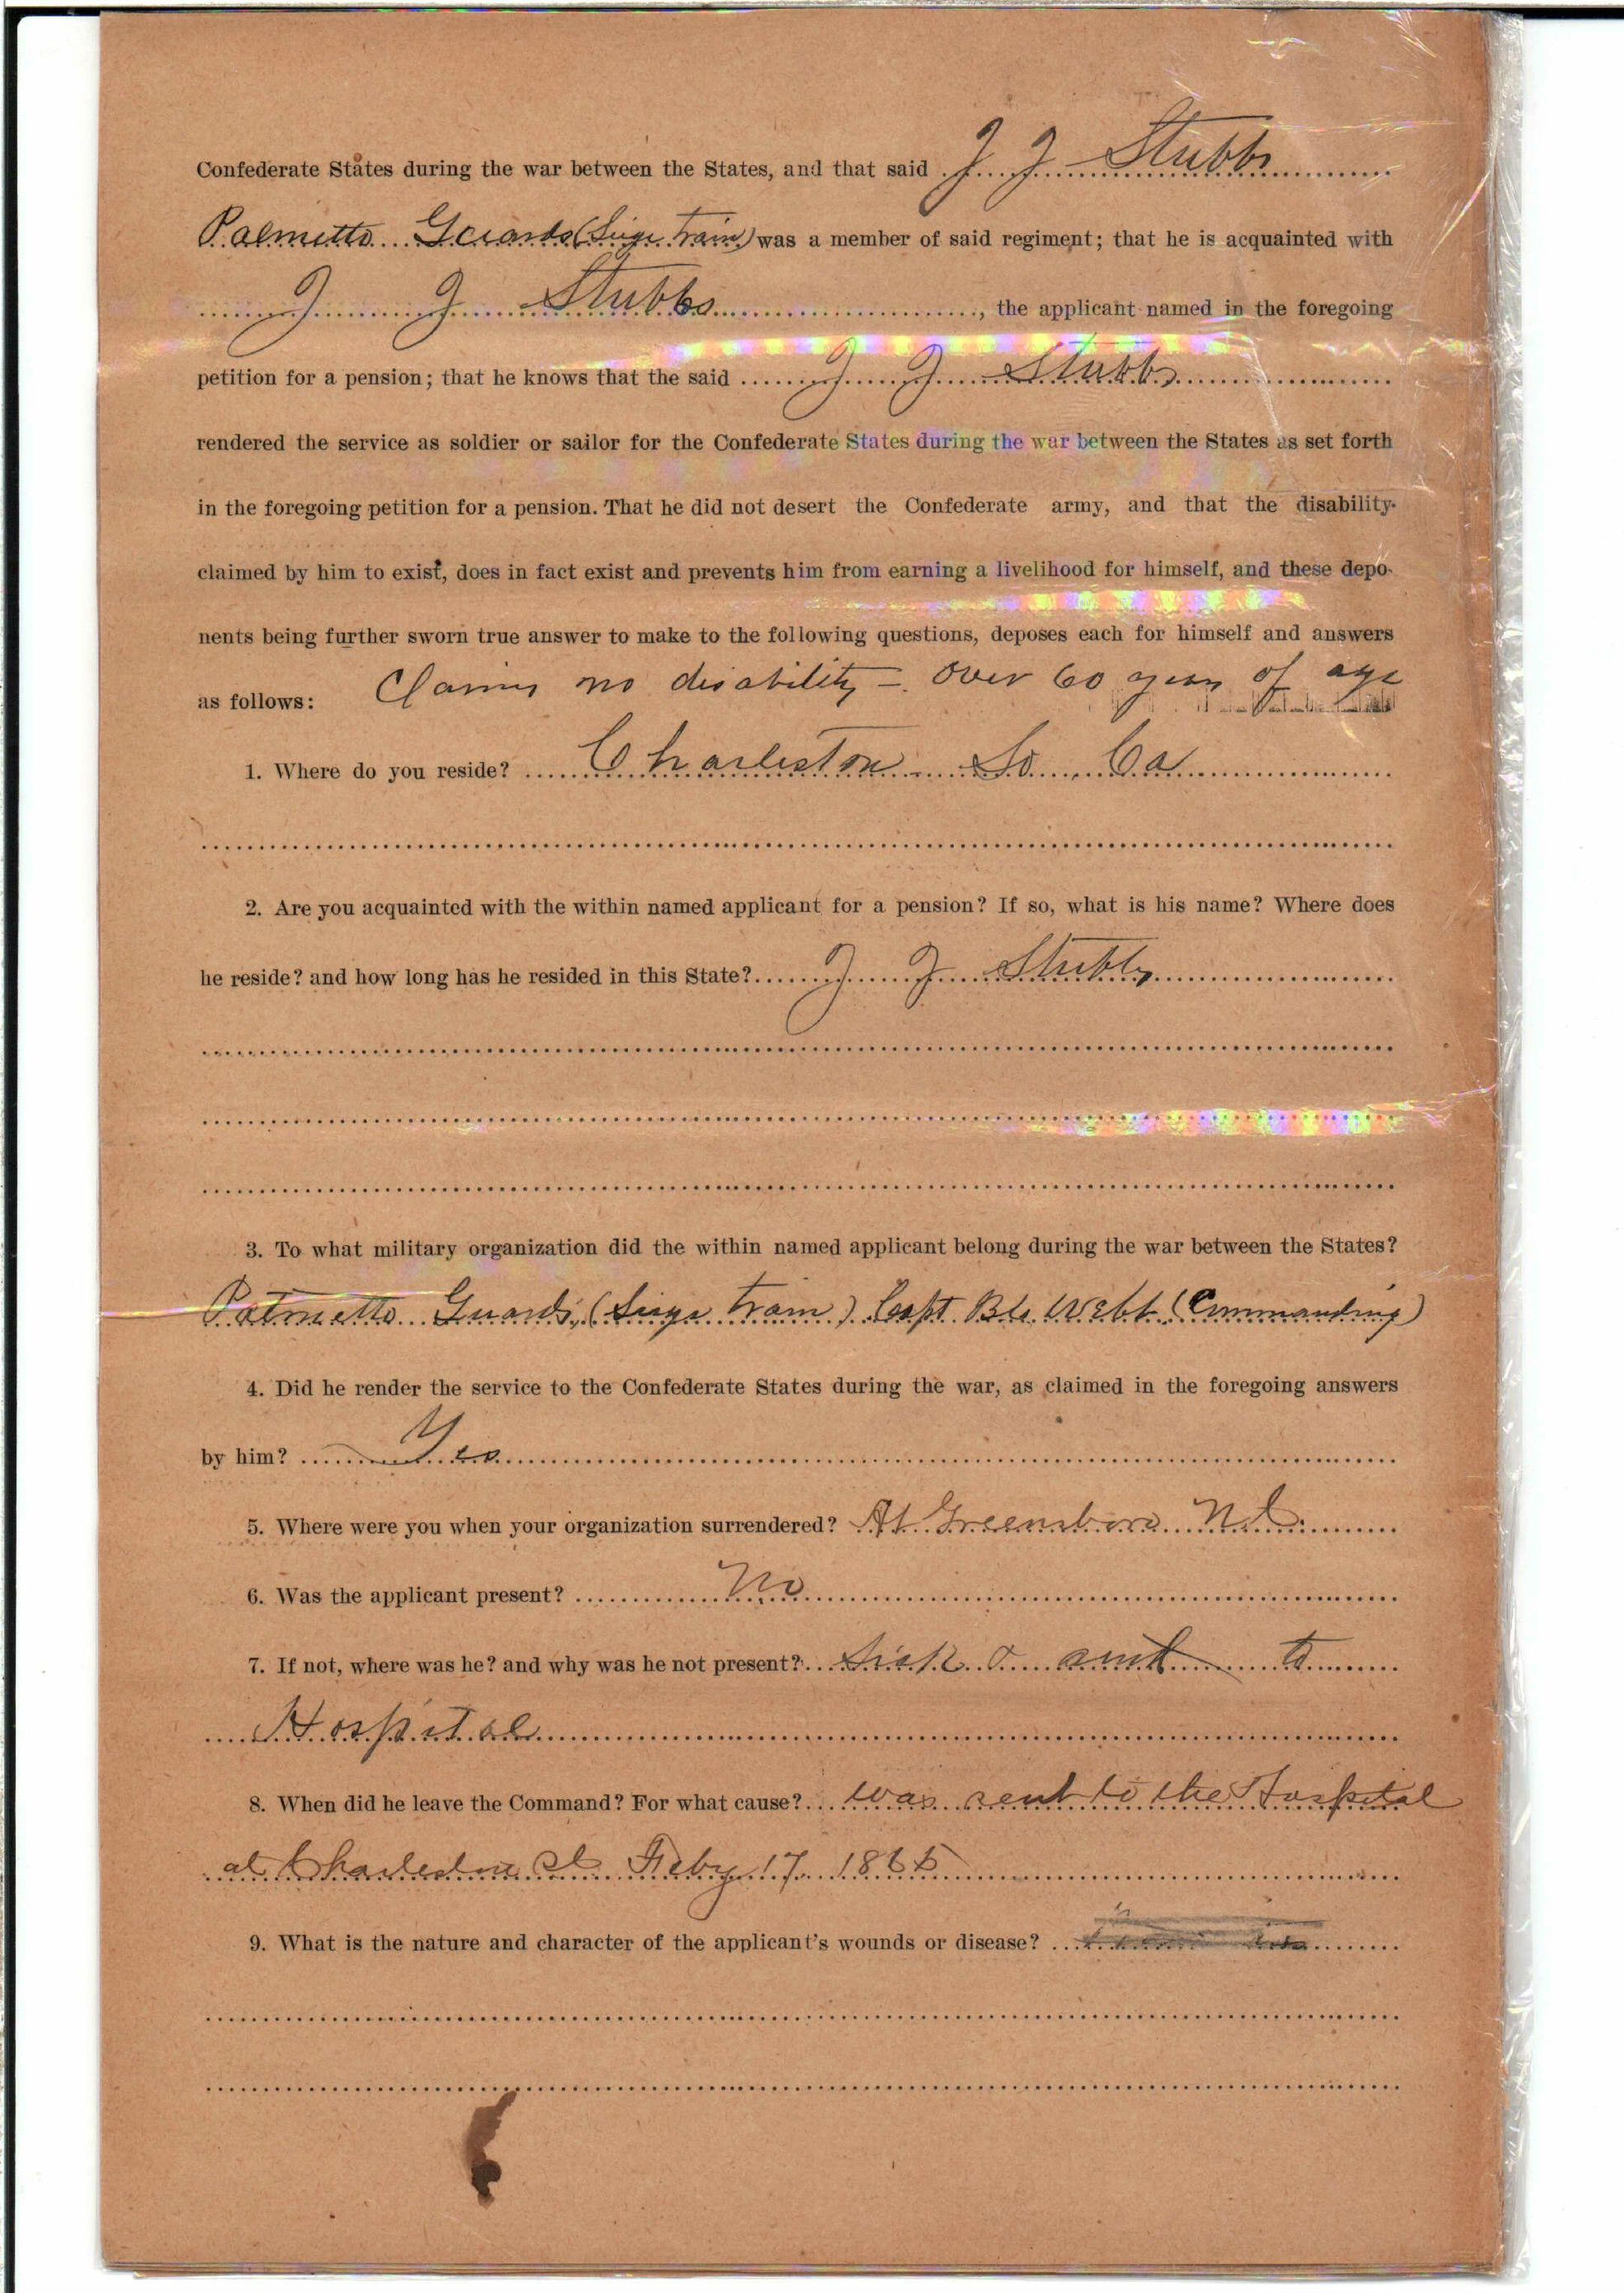 Confederate States during the war between the States, and that said J J Stubbs
Palmetto Guards (Siege Train) was a member of said regiment; that he is acquainted with
J J Stubbs, the applicant named in the foregoing
petition for a pension; that he knows that the said J J Stubbs
rendered the service as soldier or sailor for the Confederate States during the war between the States as set forth
in the foregoing petition for a pension. That he did not desert the Confederate army, and that the disability
claimed by him to exist, does in fact exist and prevents him from earning a livelihood for himself, and these depo-
nents being further sworn true answer to make to the following questions, deposes each for himself and answers
as follows: Claims no disability - over 60 years of age
1. Where do you reside? Charleston So Ca
2. Are you acquainted with the within named applicant for a pension? If so, what is his name? Where does
he reside? and how long has he resided in this State? J J Stubbs
3. To what military organization did the within named applicant belong during the war between the States?
Palmetto Guards, (Siege train) Capt. Webb (Commanding)
4. Did he render the service to the Confederate States during the war, as claimed in the foregoing answers
by him? Yes
5. Where were you when your organization surrendered? At Greensboro N.C.
6. Was the applicant present? No
7. If not, where was he? and why was he not present? Sick & sent to
Hospital
8. When did he leave the Command? For what cause? was sent to the Hospital
at Charleston SC Feby 17 1865
9. What is the nature and character of the applicant's wounds or disease?